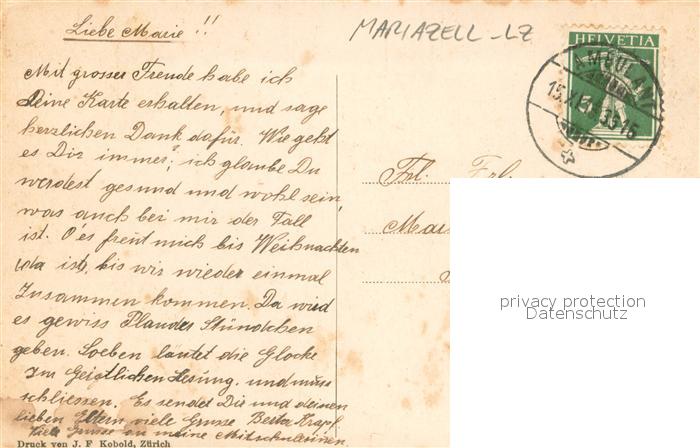 Liebe Marie!!
MARIAZELL-LZ
HELVETIA
AMBULANT
Mit grosser Freude habe ich
Deine Karte erhalten, und sage
herzlichen Dank dafür. Wie geht
es Dir immer? ich glaube Du
werdest gesund und wohl sein,
was auch bei mir der Fall
ist. O es freut mich bis Weihnachten
da ist, bis wir wieder einmal
Zusammen kommen. Da wird
es gewiss Plauder Stündchen
geben. Soeben läutet die Glocke
zur Geistlichen Lesung, und muss
schliessen. Es sendet Dir und deinen
lieben Eltern viele Grüsse Bertha Krapf
Viele Grüsse an meine Mitschülerinnen
Frl. Frl.
privacy protection
Datenschutz
Druck von J. F. Kobold, Zürich